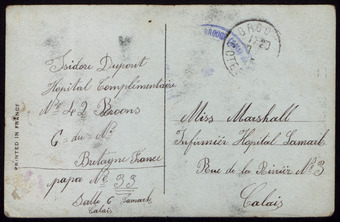 Isidore Dupont
Hopital Complimentaire
No 42 Broons
C - du - N.
Bretagne France
papa No 33
Salle 6 Lamark
Calais
PRINTED IN FRANCE
Miss Marshall
Infirmièr Hopital Lamark
Rue de la Rivièr No 3
Calais